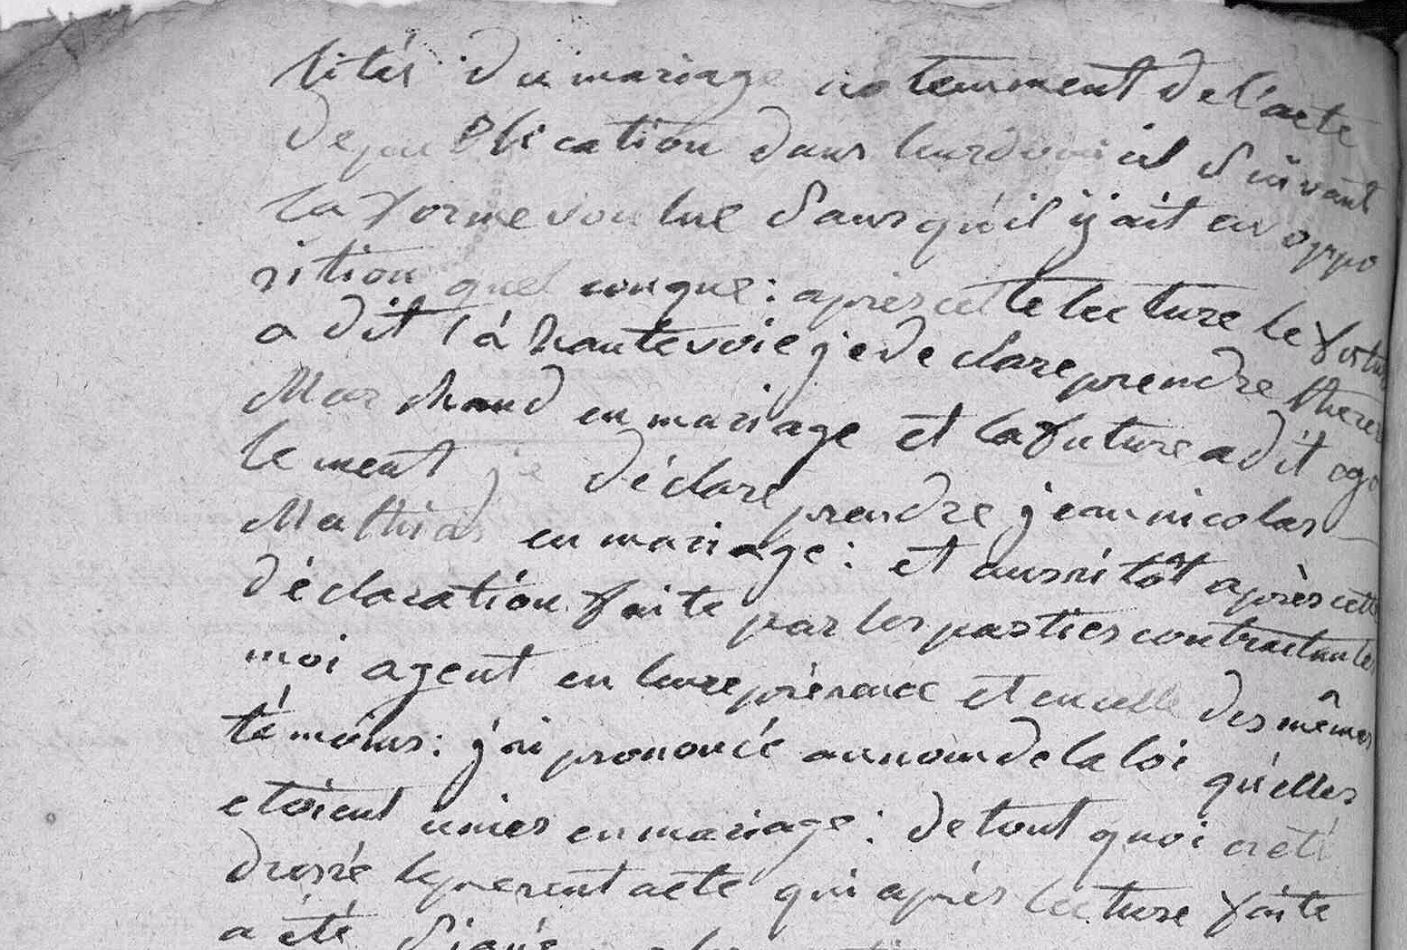 lités du mariage notemment de l'acte
de publication dans leur domicil suivant
la forme voulue sans qu'il y ait eu oppo
sition quelconque : après cette lecture le futur
a dit à haute voie je declare prendre therese
Marchand en mariage et la future a dit ega
lement je déclare prendre jean nicolas
Mathias en mariage : et aussitôt après cette
déclaration faite par les parties contractantes
moi agent en leure présence et en celle des mêmes
témoins : j'ai prononcé au nom de la loi qu'elles
etoient unies en mariage : de tout quoi a été
dressé le present acte qui après lecture faite
a été signé